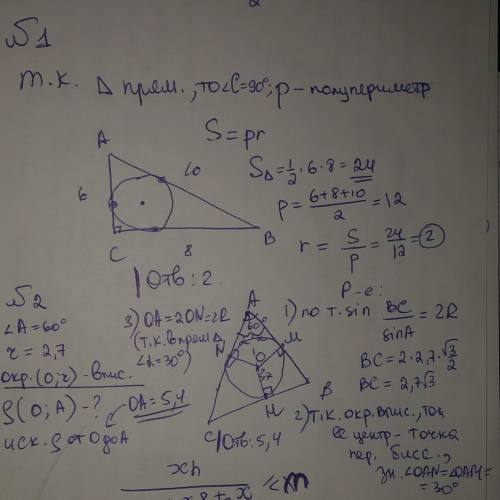 №1
т.к. Δ прям., то ∠C=90°; p – полупериметр
S = pr
A
6
10
C
8
B
S△ = 1/2 · 6 · 8 = 24
p = (6+8+10)/2 = 12
r = S/p = 24/12 = 2
Отв: 2.
№2
∠A = 60°
r = 2,7
окр. (O; r) – впис.
ρ(O; A) - ?
иск. ρ от O до A
3) OA = 2ON = 2R
(т.к. в прям. Δ
∠ = 30°)
OA = 5,4
A
60°
N
M
O
2,7
C
H
B
Отв: 5,4
Р-е:
1) по т. sin BC/sinA = 2R
BC = 2 · 2,7 · √3/2
BC = 2,7√3
2) т.к. окр. впис., то
её центр – точка
пер. бисс.,
зн. ∠OAN = ∠OAM =
= 30°